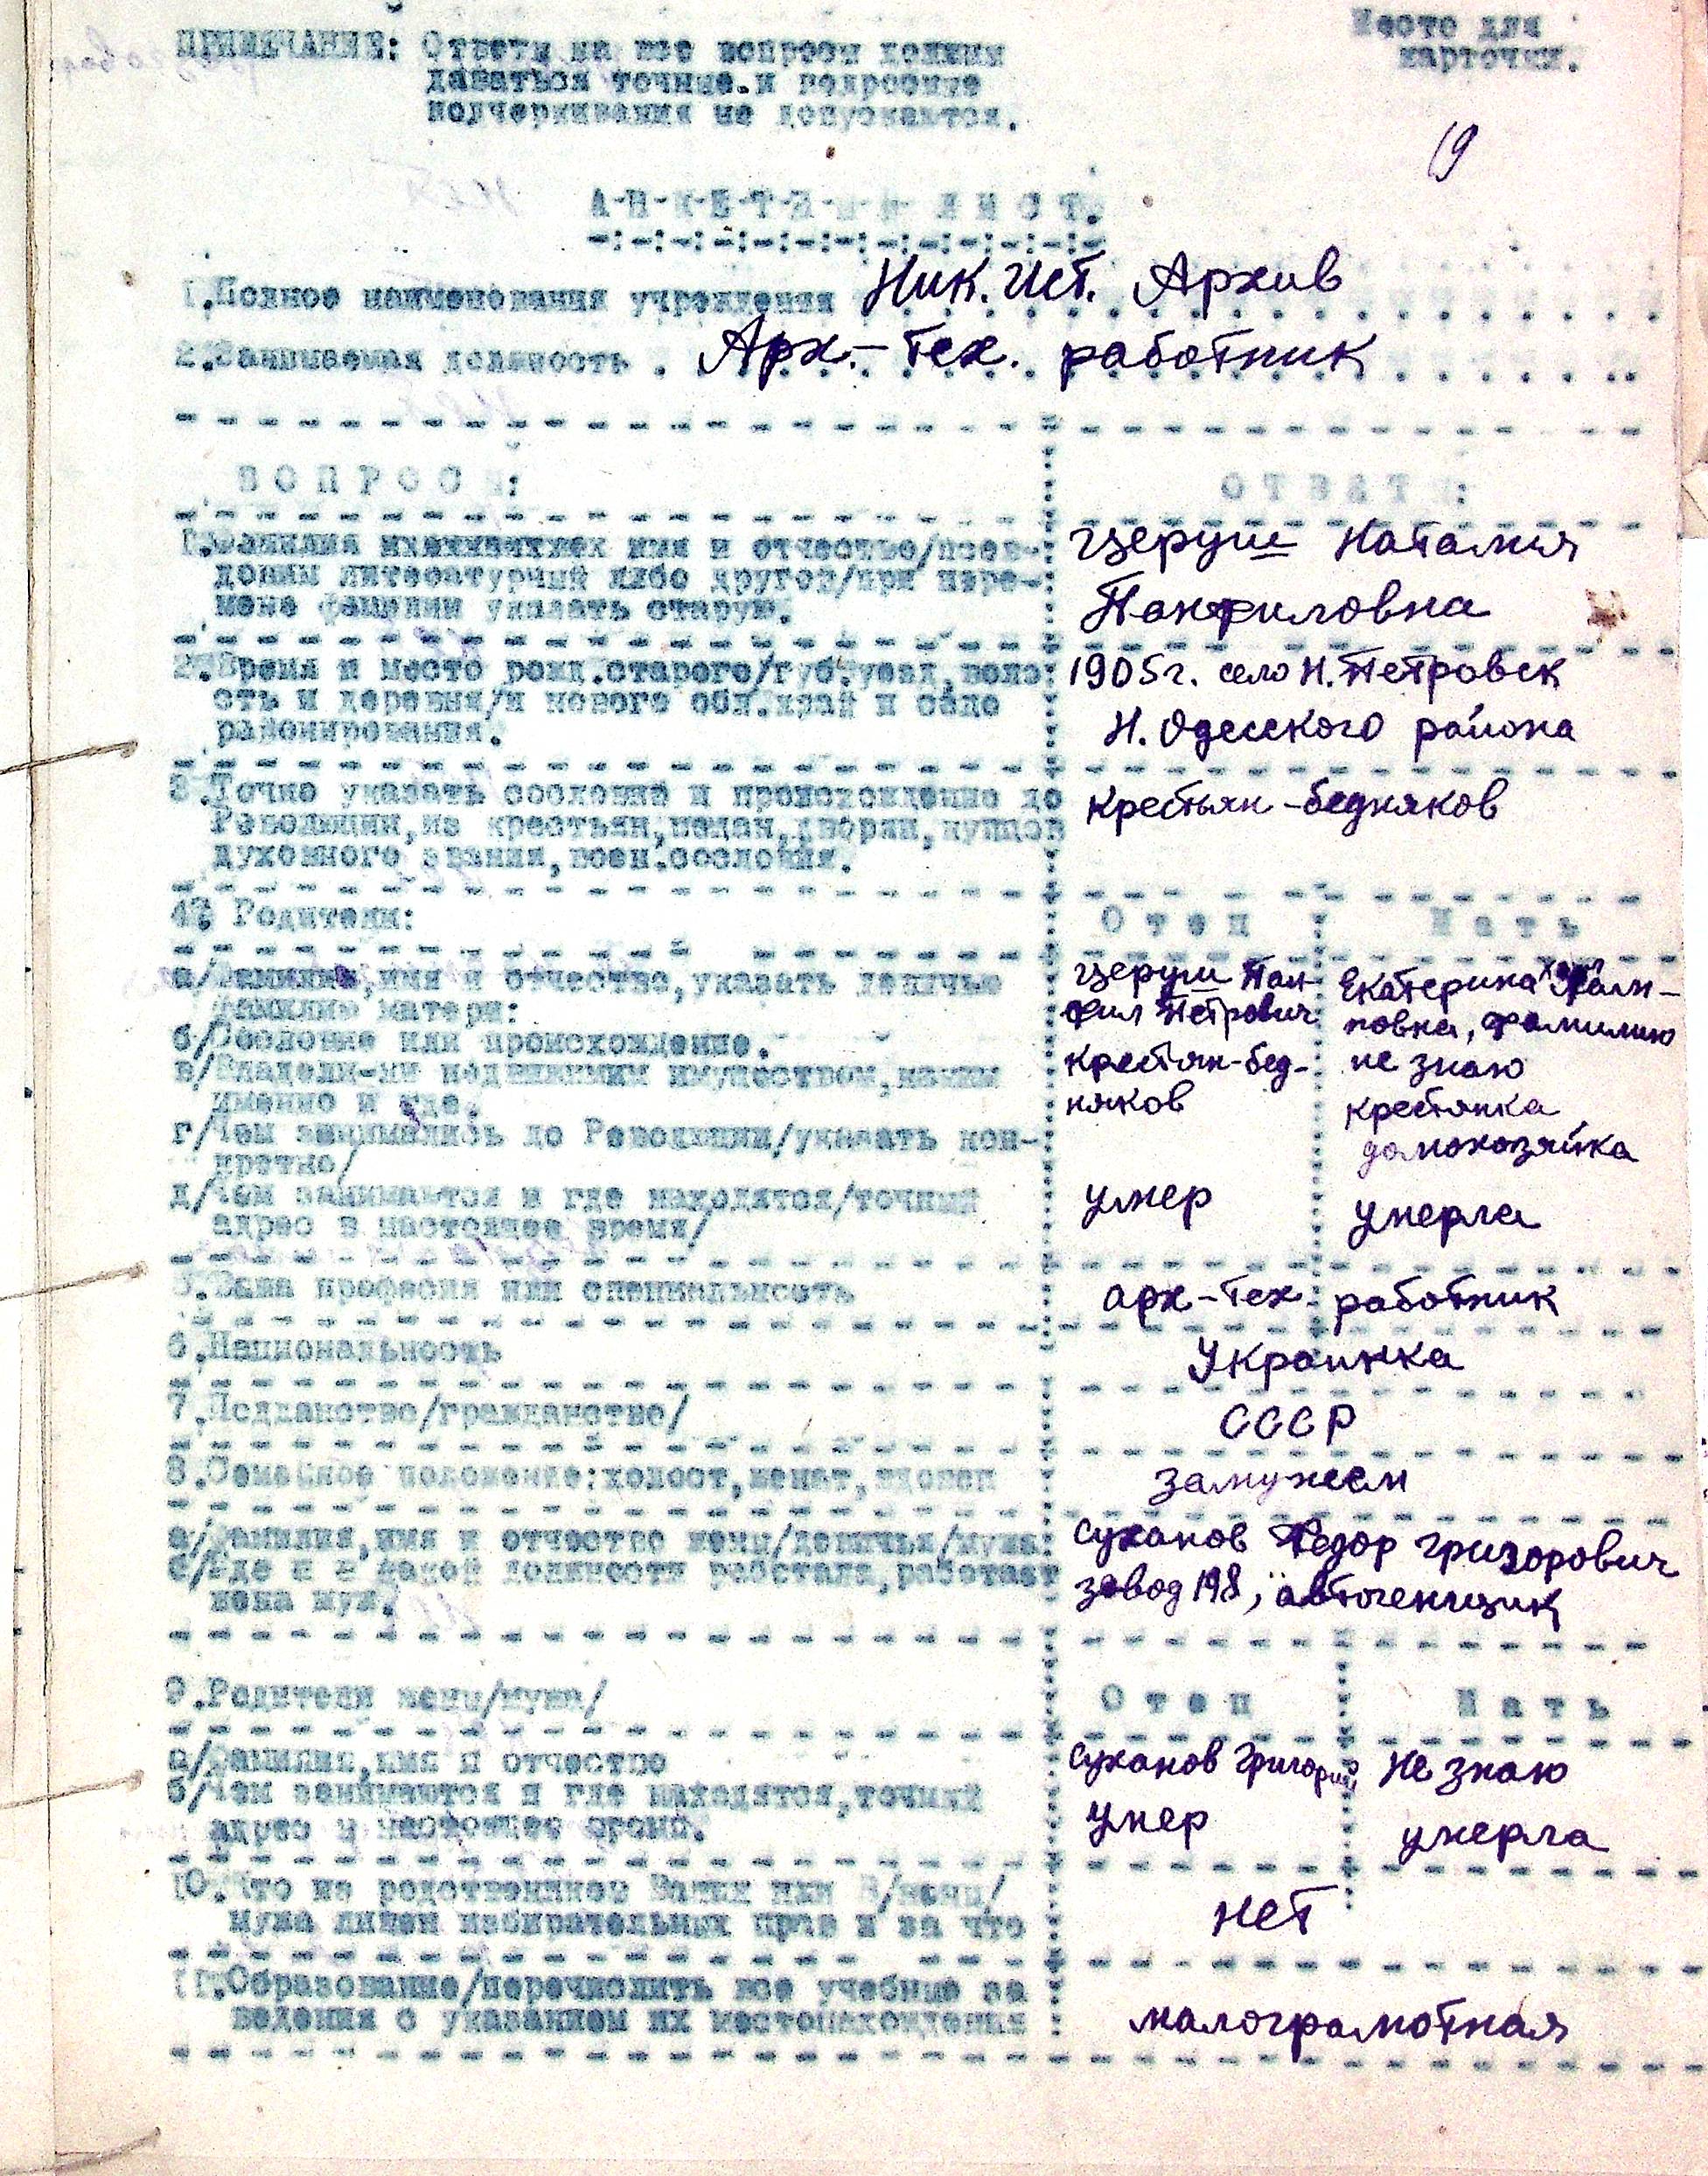 ПРИМЕЧАНИЕ: Ответы на все вопросы должны
даваться точные.и подробные
подчеркивания не допускаются.
Место для
карточки.
19
А-Н-К-Е-Т-Н-Ы-Й Л И С Т.
-:-:-:-:-:-:-:-:-:-:-:-:-
1.Полное наименования учреждения Ник. Ист. Архив
2.Занимаемая должность . Арх.-тех. работник
В О П Р О С Ы:
О Т В Е Т Ы:
1.Фамилия имя и отчество/псев-
доним литературный либо другой/при пере-
мене фамилии указать старую.
Церуш Наталия
Панфиловна
2.Время и место рожд.старого/губ.уезд,воло
сть и деревня/и нового обл.край и село
районирования.
1905г. село Н. Петровск
Н. Одесского района
3.Точно указать сословие и происхождение до
Революции,из крестьян,мещан,дворян,купцов
духовного звания,воен.сословия.
крестьян-бедняков
4. Родители:
О т е ц
М а т ь
а/Фамилия,имя и отчество,указать девичью
фамилию матери:
б/Сословие или происхождение.
в/Владели-ли недвижимым имуществом,каким
именно и где.
г/Чем занимались до Революции/указать кон-
кретно/
д/Чем занимаются и где находятся/точный
адрес в настоящее время/
Церуш Пан-
фил Петрович
крестян-бед-
няков
умер
Екатерина
повна, фамилию
не знаю
крестянка
домохозяйка
умерла
5.Ваша професия или специальность
арх-тех. работник
6.Национальность
Украинка
7.Подданство/гражданство/
СССР
8.Семейное положение:холост,женат,вдовец
замужем
а/Фамилия,имя и отчество жены/девичья/мужа
б/Где и в какой должности работала,работает
жена муж.
Суханов Федор Григорович
завод 198, автогенщик
9.Родители жены/мужа/
О т е ц
М а т ь
а/Фамилия,имя и отчество
б/Чем занимаются и где находятся,точный
адрес в настоящее время.
Суханов Григорий
умер
Не знаю
умерла
10.Кто из родственников Ваших или В/жены/
мужа лишен избирательных прав и за что
нет
11.Образование/перечислить все учебные за
ведения с указанием их местонахождения
малограмотная